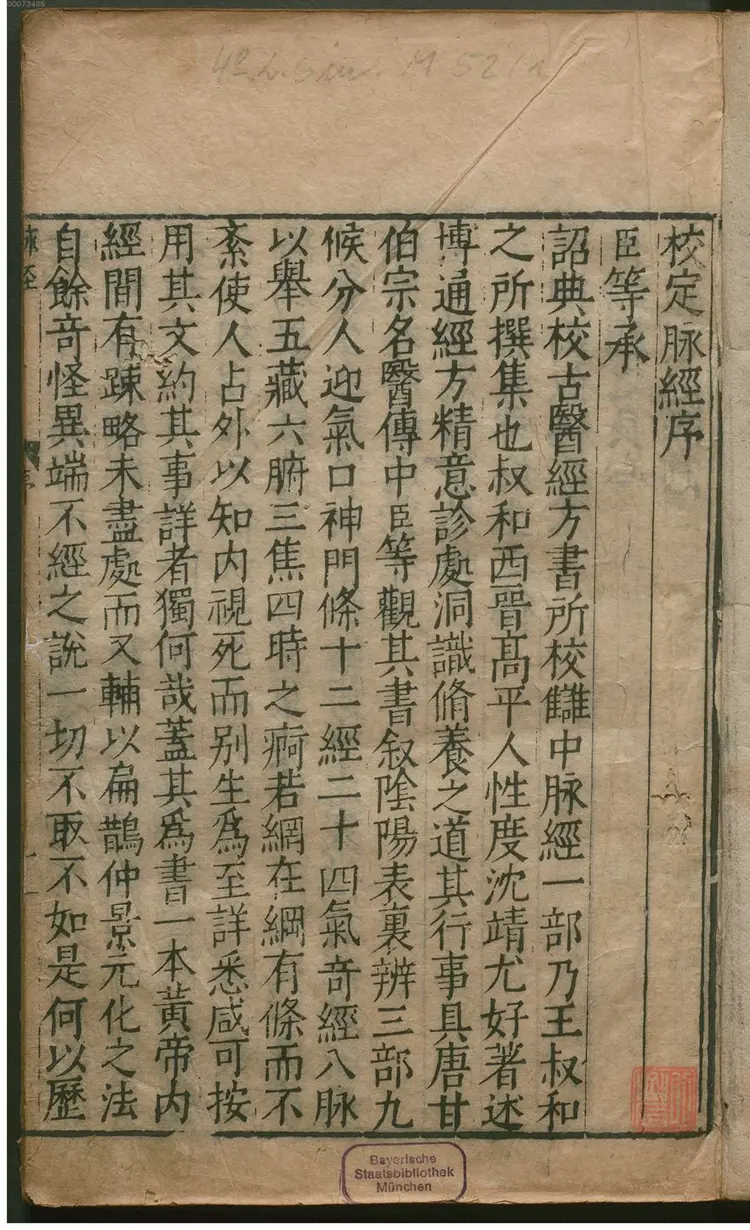 00073466
4° L. sin. M 52/1
校定脉經序
臣等承
詔典校古醫經方書所校讎中脉經一部乃王叔和
之所撰集也叔和西晉髙平人性度沈靖尤好著述
博通經方精意診處洞識脩養之道其行事具唐甘
伯宗名醫傳中臣等觀其書叙陰陽表裏辨三部九
候分人迎氣口神門條十二經二十四氣奇經八脉
以舉五藏六腑三焦四時之痾若網在綱有條而不
紊使人占外以知内視死而别生爲至詳悉咸可按
用其文約其事詳者獨何哉蓋其爲書一本黃帝内
經間有踈略未盡處而又輔以扁鵲仲景元化之法
自餘竒怪異端不經之說一切不取不如是何以歷
脉經
序
一
Bayerische
Staatsbibliothek
München